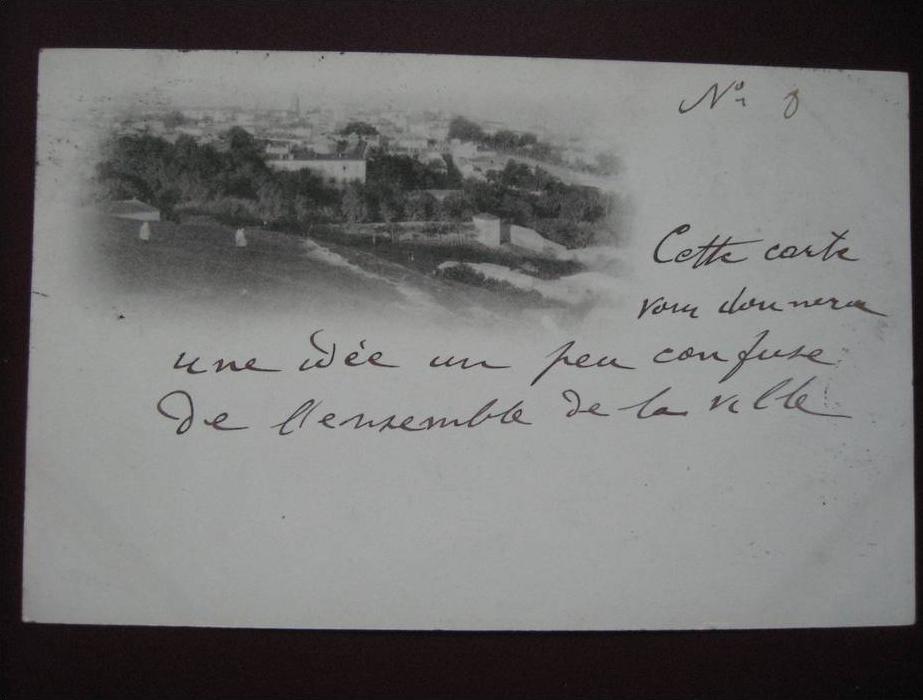 N° 8
Cette carte
vous donnera
une idée un peu confuse
de l'ensemble de la ville